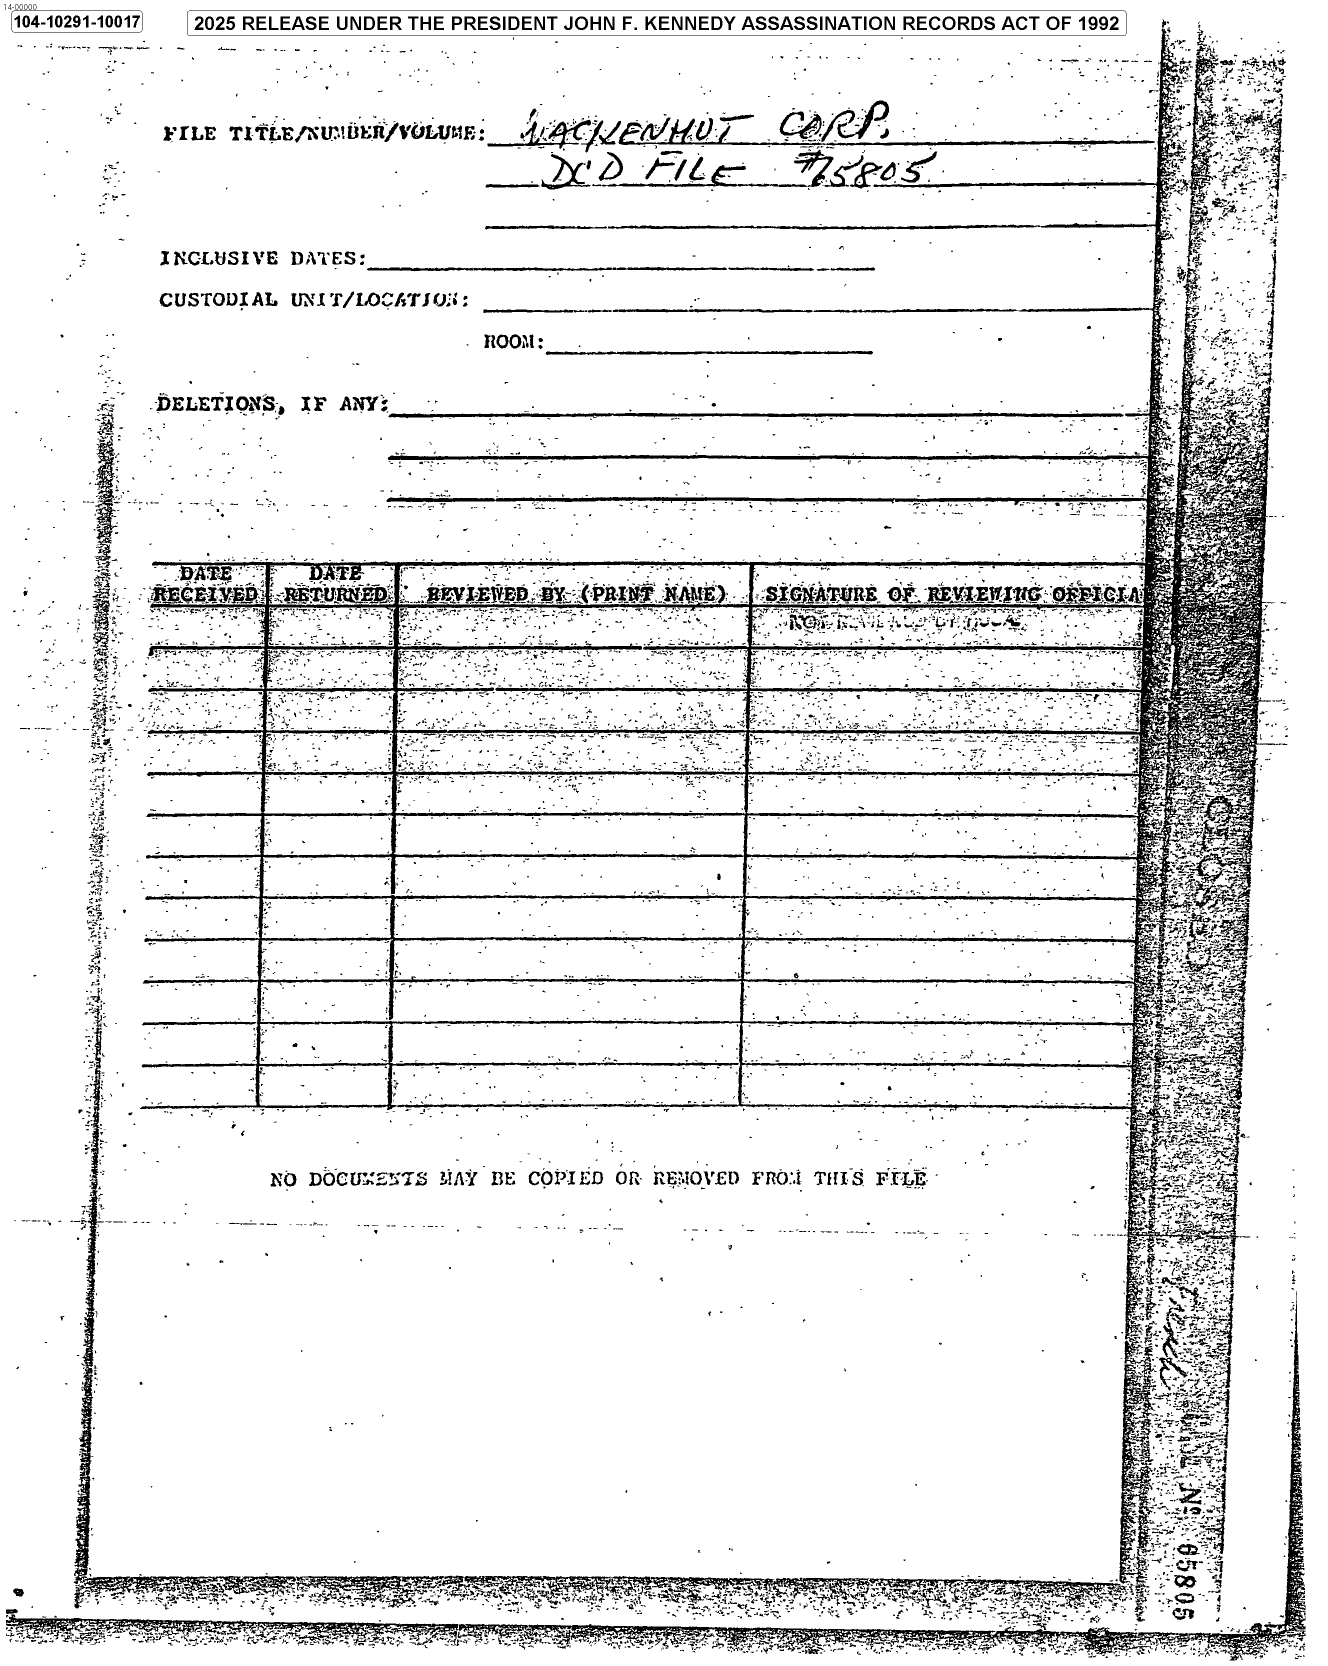 14-00000
104-10291-10017
2025 RELEASE UNDER THE PRESIDENT JOHN F. KENNEDY ASSASSINATION RECORDS ACT OF 1992
FILE TITLE/NUMBER/VOLUME: WACKENHUT CORP.
DCD FILE #75805
INCLUSIVE DATES:
CUSTODIAL UNIT/LOCATION:
ROOM:
DELETIONS, IF ANY:
DATE RECEIVED
DATE RETURNED
REVIEWED BY (PRINT NAME)
SIGNATURE OF REVIEWING OFFICIA
NOT REVIEWED BY
NO DOCUMENTS MAY BE COPIED OR REMOVED FROM THIS FILE
CLOSED
CASE Nº 65805